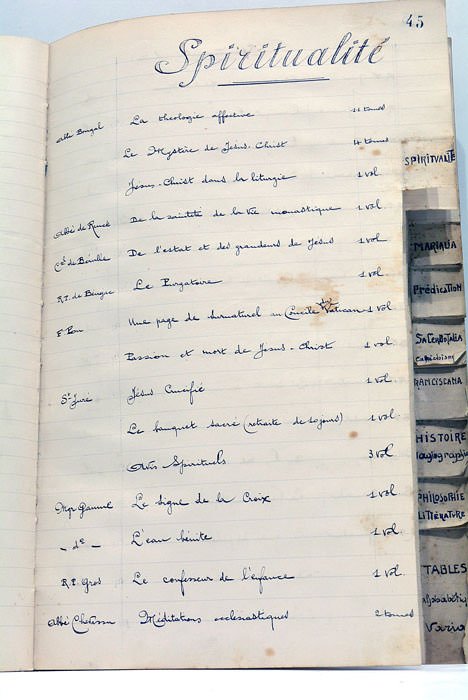 45
Spiritualité
Abbé Bougal La théologie affective 11 tomes
Le Mystère de Jésus-Christ 4 tomes
Jésus-Christ dans la liturgie 1 vol
Abbé de Rancé De la sainteté de la vie monastique 1 vol
Cal de Bérulle De l'estat et des grandeurs de Jésus 1 vol
R.P. de Le Purgatoire 1 vol
Une page de surnaturel au Concile du Vatican 1 vol
Passion et mort de Jésus-Christ 1 vol
St Jure Jésus Crucifié 1 vol
Le banquet sacré (retraite de 10 jours) 1 vol
Avis Spirituels 3 vol
Mgr Gaume Le Signe de la Croix 1 vol
- do - L'eau bénite 1 vol
R.P. Gros Le confesseur de l'enfance 1 vol
Abbé Méditations ecclésiastiques 2 tomes
SPIRITUALITÉ
MARIALIA
Prédication
SACERDOTALIA
Catéchisme
FRANCISCANA
HISTOIRE
Hagiographie
PHILOSOPHIE
LITTÉRATURE
TABLES
Alphabétiq
Varia